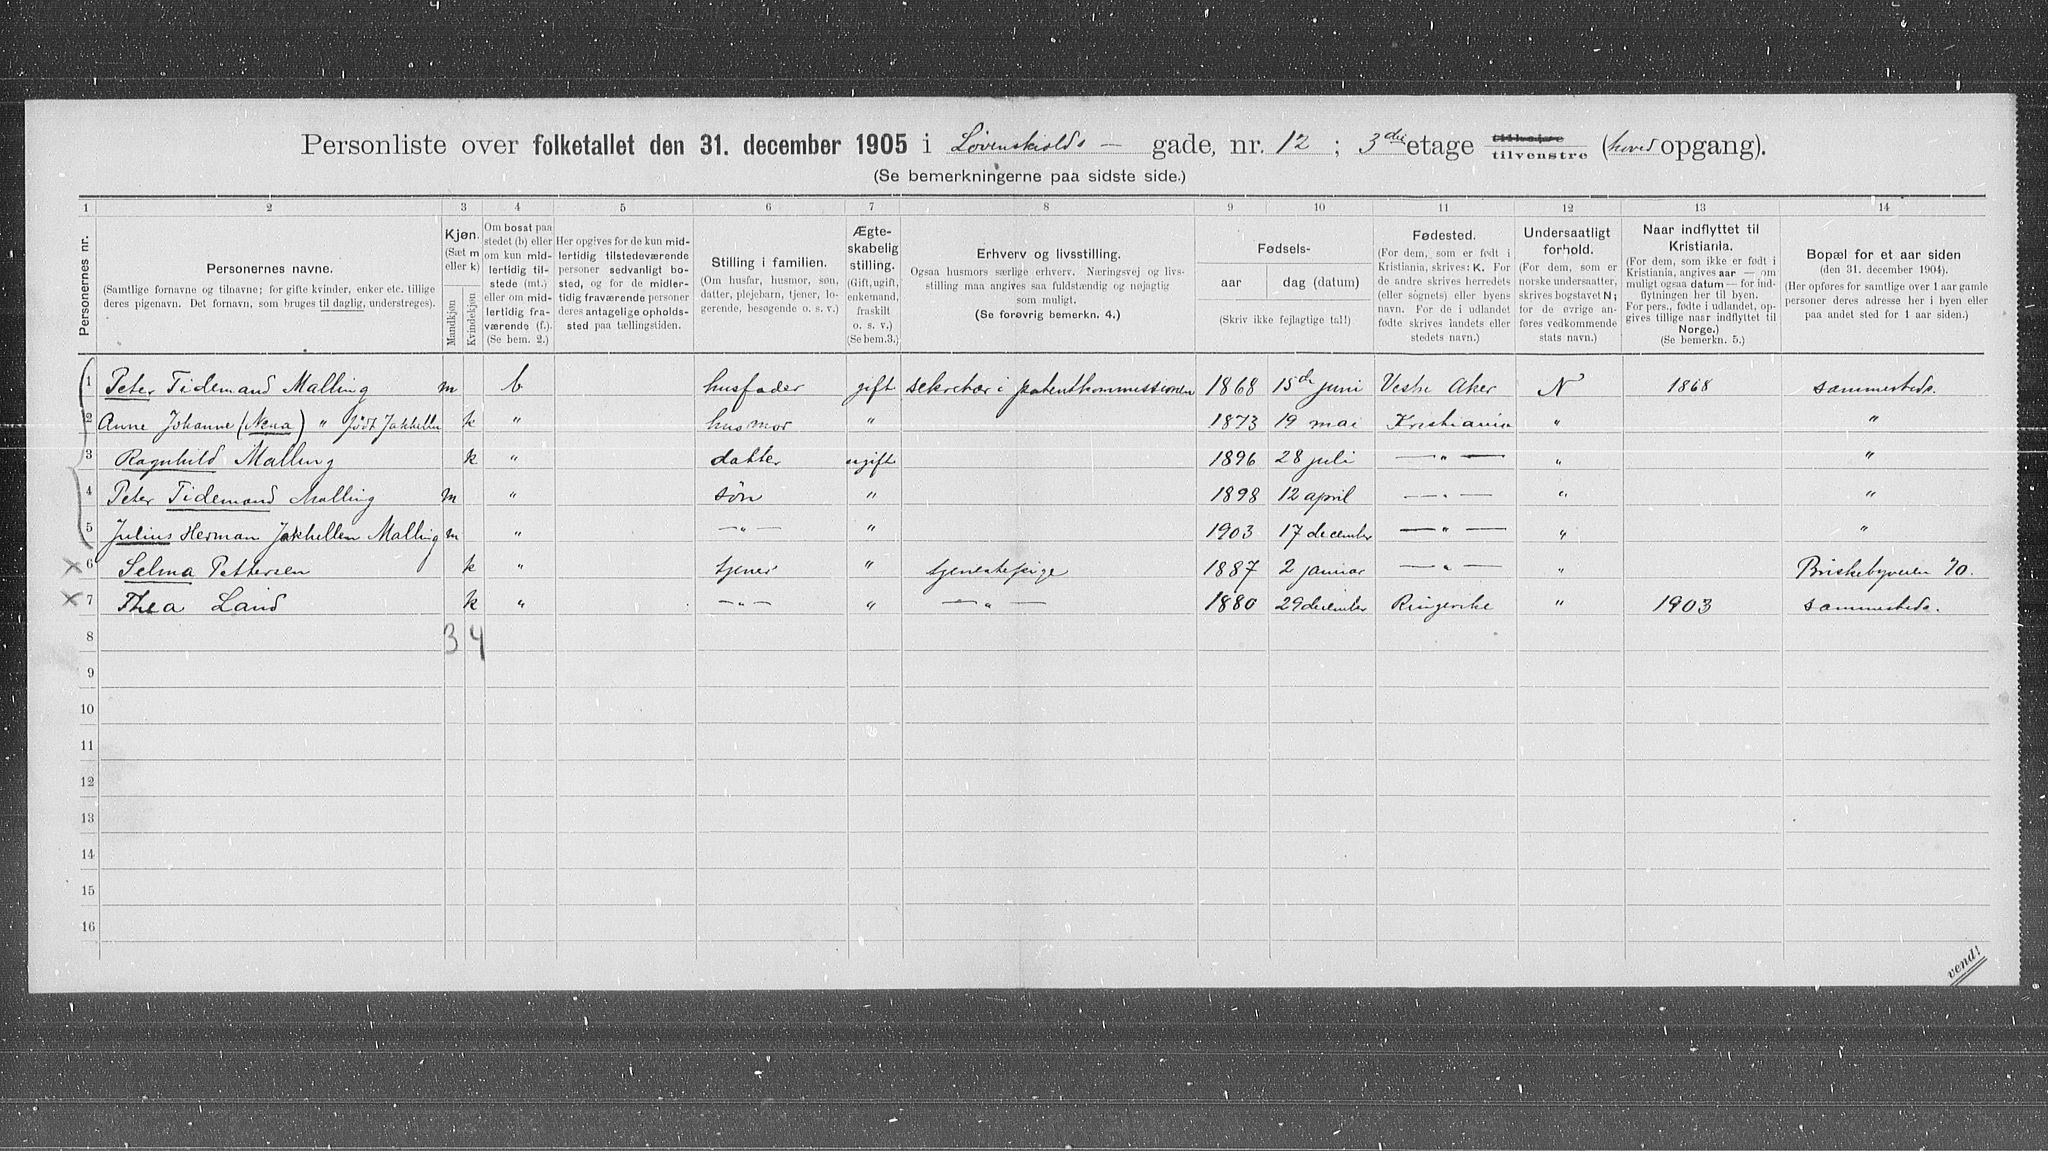 Personliste over folketallet den 31. december 1905 i Løvenskiolds — gade, nr. 12 ; 3die etage tilhøire tilvenstre (hoved opgang).
(Se bemerkningerne paa sidste side.)
1 2 3 4 5 6 7 8 9 10 11 12 13 14
Personernes nr.
Personernes navne.
(Samtlige fornavne og tilnavne; for gifte kvinder, enker etc. tillige
deres pigenavn. Det fornavn, som bruges til daglig, understreges).
Kjøn.
(Sæt m
eller k)
Mandkjøn
Kvindekjøn
Om bosat paa
stedet (b) eller
om kun mid-
lertidig til-
stede (mt.)
eller om mid-
lertidig fra-
værende (f.).
(Se bem. 2.)
Her opgives for de kun mid-
lertidig tilstedeværende
personer sedvanligt bo-
sted, og for de midler-
tidig fraværende personer
deres antagelige opholds-
sted paa tællingstiden.
Stilling i familien.
(Om husfar, husmor, søn,
datter, plejebarn, tjener, lo-
gerende, besøgende o. s. v.)
Ægte-
skabelig
stilling.
(Gift, ugift,
enkemand,
fraskilt
o. s. v.)
(Se bem.3.)
Erhverv og livsstilling.
Ogsaa husmors særlige erhverv. Næringsvej og livs-
stilling maa angives saa fuldstændig og nøjagtig
som muligt.
(Se forøvrig bemerkn. 4.)
Fødsels-
aar dag (datum)
(Skriv ikke fejlagtige tal!)
Fødested.
(For dem, som er født i
Kristiania, skrives: K. For
de andre skrives herredets
(eller sognets) eller byens
navn. For de i udlandet
fødte skrives landets eller
stedets navn.)
Undersaatligt
forhold.
(For dem, som er
norske undersaatter,
skrives bogstavet N;
for de øvrige an-
føres vedkommende
stats navn.)
Naar indflyttet til
Kristiania.
(For dem, som ikke er født i
Kristiania, angives aar — om
muligt ogsaa datum — for ind-
flytningen her til byen.
For pers., fødte i udlandet, op-
gives tillige naar indflyttet til
Norge.)
(Se bemerkn. 5.)
Bopæl for et aar siden
(den 31. december 1904).
(Her opføres for samtlige over 1 aar gamle
personer deres adresse her i byen eller
paa andet sted for 1 aar siden.)
1 Peter Tidemand Malling m b husfader gift sekretær i patentkommissionen 1868 15de juni Vestre Aker N 1868 sammesteds.
2 Anne Johanne (Nena) " født Jakhelln k " husmor " 1873 19 mai Kristiania " "
3 Ragnhild Malling k " datter ugift 1896 28 juli — " — " "
4 Peter Tidemand Malling m " søn " 1898 12 april — " — " "
5 Julius Herman Jakhellen Malling m " — " — " 1903 17 december — " — " "
x 6 Selma Pettersen k " tjener " tjenestepige 1887 2 januar — " — " Briskebyveien 70.
x 7 Thea Land k " — " — " — " — 1880 29 december Ringerike " 1903 sammesteds.
8 3 4
9
10
11
12
13
14
15
16
vend!